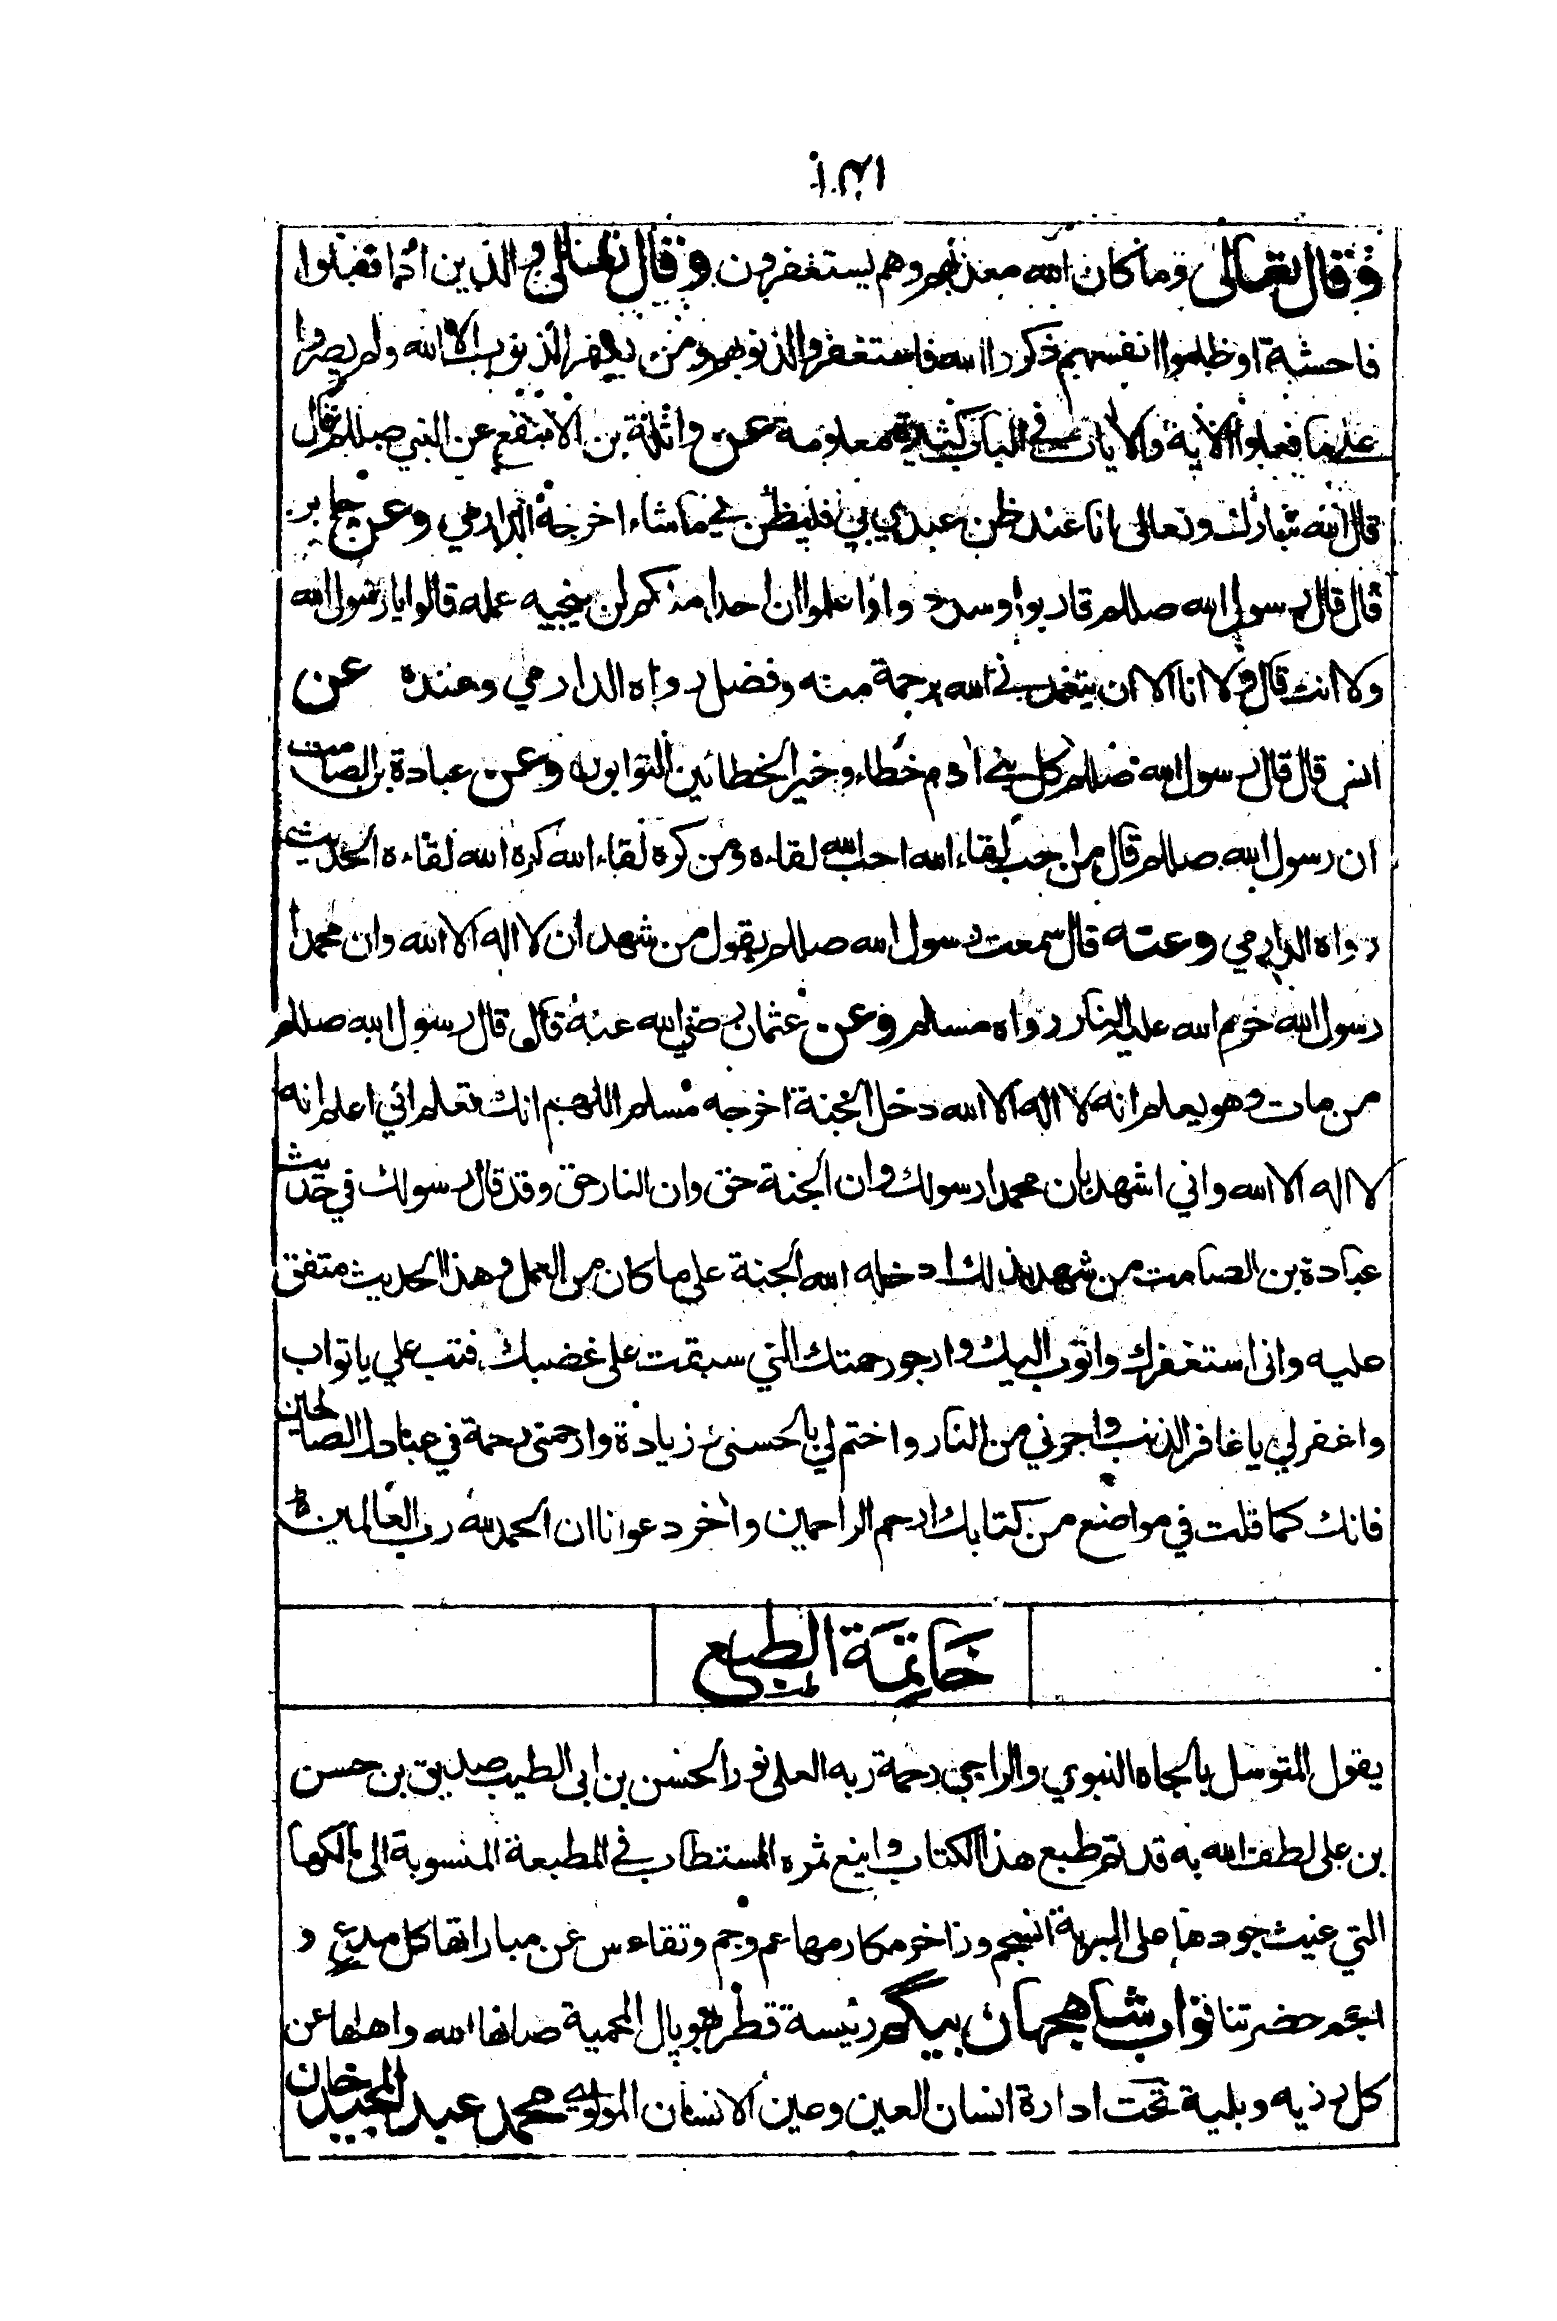 وقال تعالى وما كان الله معذبهم وهم يستغفرون وقال تعالى والذين اذا فعلوا
فاحشة او ظلموا انفسهم ذكروا الله فاستغفروا لذنوبهم ومن يغفر الذنوب الا الله ولم يصروا
على ما فعلوا الآية والآيات في الباب كثيرة معلومة عن واثلة بن الاسقع عن النبي صللم قال
قال الله تبارك وتعالى انا عند ظن عبدي بي فليظن بي ما شاء اخرجه الدارمي وعن جابر
قال قال رسول الله صللم قاربوا وسددوا واعلموا ان احدا منكم لن ينجيه عمله قالوا يا رسول الله
ولا انت قال ولا انا الا ان يتغمدني الله برحمة منه وفضل رواه الدارمي وعنده عن
انس قال قال رسول الله صللم كل بني آدم خطاء وخير الخطائين التوابون وعن عبادة بن الصامت
ان رسول الله صللم قال من احب لقاء الله احب الله لقاءه ومن كره لقاء الله كره الله لقاءه الحديث
رواه الدارمي وعنه قال سمعت رسول الله صللم يقول من شهد ان لا اله الا الله وان محمدا
رسول الله حرم الله عليه النار رواه مسلم وعن عثمان رضي الله عنه قال قال رسول الله صللم
من مات وهو يعلم انه لا اله الا الله دخل الجنة اخرجه مسلم اللهم انك تعلم اني اعلم انه
لا اله الا الله واني اشهد بان محمدا رسولك وان الجنة حق وان النار حق وقد قال رسولك في حديث
عبادة بن الصامت من شهد بذلك ادخله الله الجنة على ما كان من العمل وهذا الحديث متفق
عليه وانى استغفرك واتوب اليك وارجو رحمتك التي سبقت على غضبك فتب علي يا تواب
واغفر لي يا غافر الذنب واجرني من النار واختم لي بالحسنى وزيادة وارحمنى برحمة في عبادك الصالحين
فانك كما قلت في مواضع من كتابك ارحم الراحمين وآخر دعوانا ان الحمد لله رب العالمين
خاتمة الطبع
يقول المتوسل بالجاه النبوي والراجي رحمة ربه العلى نور الحسن بن ابى الطيب صديق بن حسن
بن على لطف الله به قد تم طبع هذا الكتاب واينع ثمره المستطاب في المطبعة المنسوبة الى مالكها
التي غيث جودها على البرية انسجم وزاخر مكارمها عم وجم وتقاعس عن مباراتها كل مدع و
حضرتنا نواب شاهجهان بيگم رئيسة قطر بهوپال المحمية صانها الله واهلها عن
كل رزية وبلية تحت ادارة انسان العين وعين الانسان المولوي محمد عبد المجيد خان